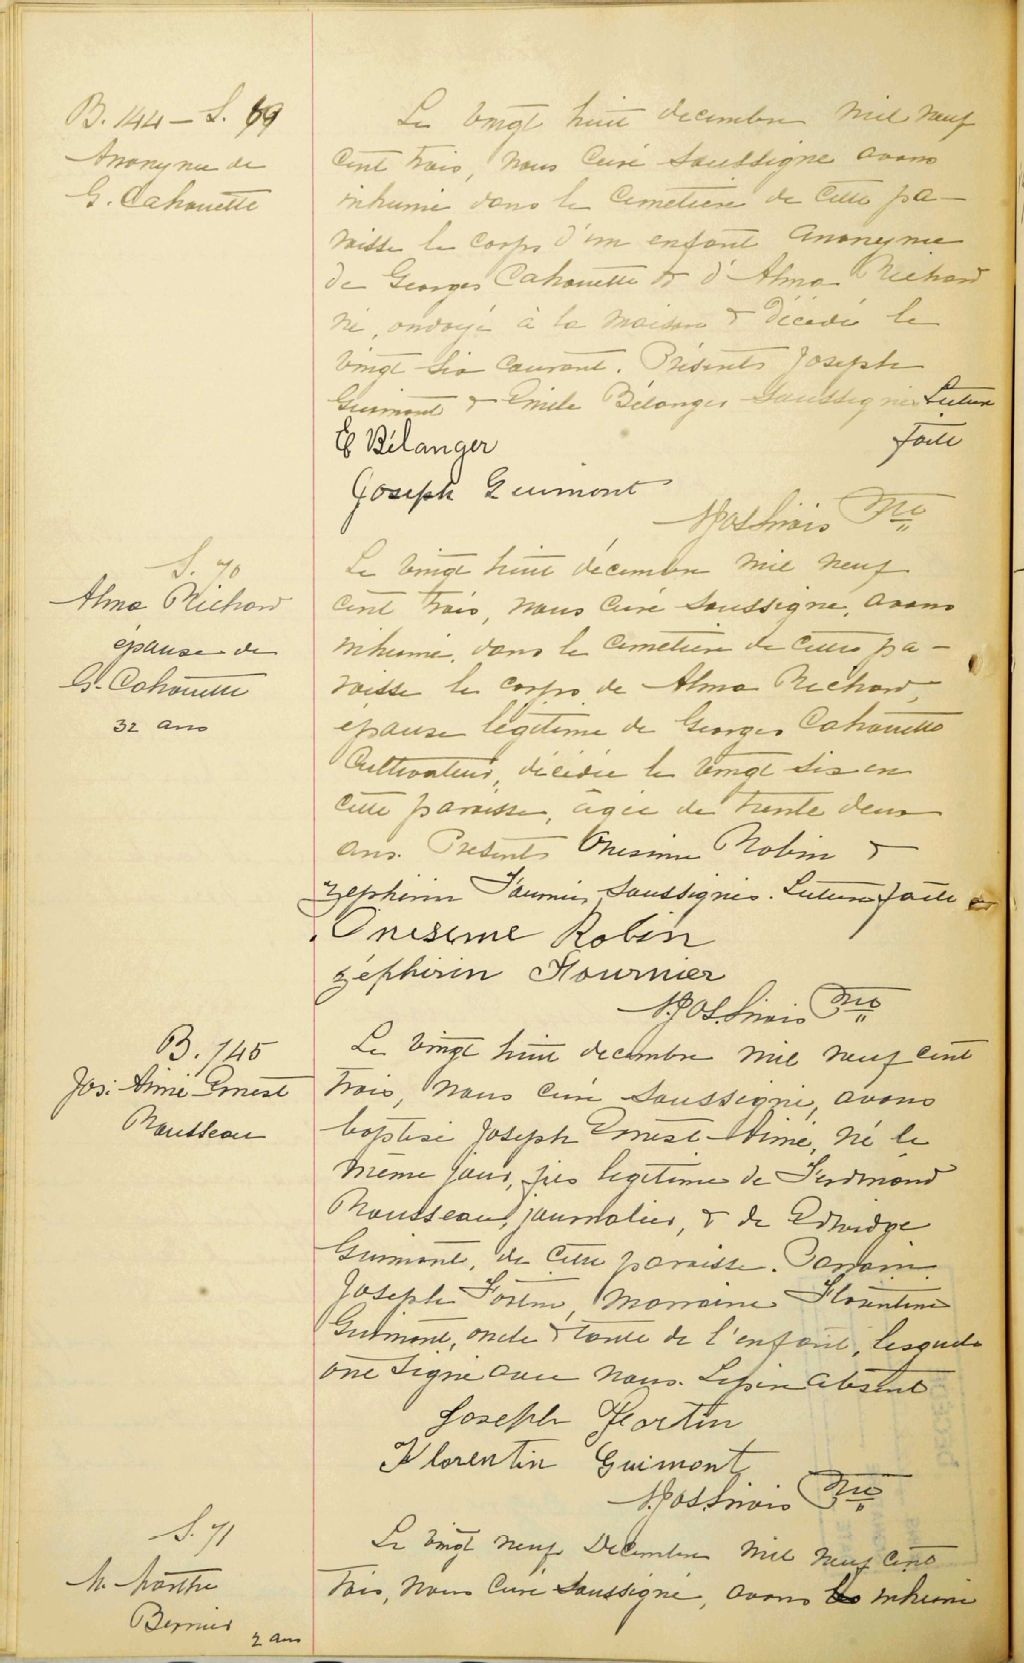 B. 144 – S. 69
Anonyme de
G. Cahouette
Le vingt huit decembre mil neuf
cent trois, nous curé soussigné avons
inhumé dans le cimetière de cette pa-
roisse le corps d'un enfant anonyme
de Georges Cahouette & d'Alma Richard
né, ondoyé à la maison & décédé le
vingt six courant. Présents Joseph
Guimont & Emile Bélanger soussignés Lecture
faite
E Bélanger
Joseph Guimont
S. 70
Alma Richard
épouse de
G. Cahouette
32 ans
Le vingt huit décembre mil neuf
cent trois, nous curé soussigné, avons
inhumé, dans le cimetière de cette pa-
roisse le corps de Alma Richard,
épouse légitime de Georges Cahouette
cultivateur, décédée le vingt six en
cette paroisse, âgée de trente deux
ans. Présents Onesime Robin &
Zephirin Fournier, soussignés. Lecture faite
Oneseme Robin
Zéphirin Fournier
B. 145
Jos: Aimé Ernest
Rousseau
Le vingt huit decembre mil neuf cent
trois, nous curé soussigné, avons
baptisé Joseph Ernest-Aimé, né le
même jour, fils légitime de Ferdinand
Rousseau, journalier, & de Edwidge
Guimont, de cette paroisse. Parrain
Joseph Fortin, marraine Florentine
Guimont, oncle & tante de l'enfant, lesquels
ont signé avec nous. Le père absent
Joseph Fortin
Florentin Guimont
S. 71
M. Marthe
Bernier
2 ans
Le vingt neuf Decembre mil neuf cent
trois, nous curé soussigné, avons inhumé